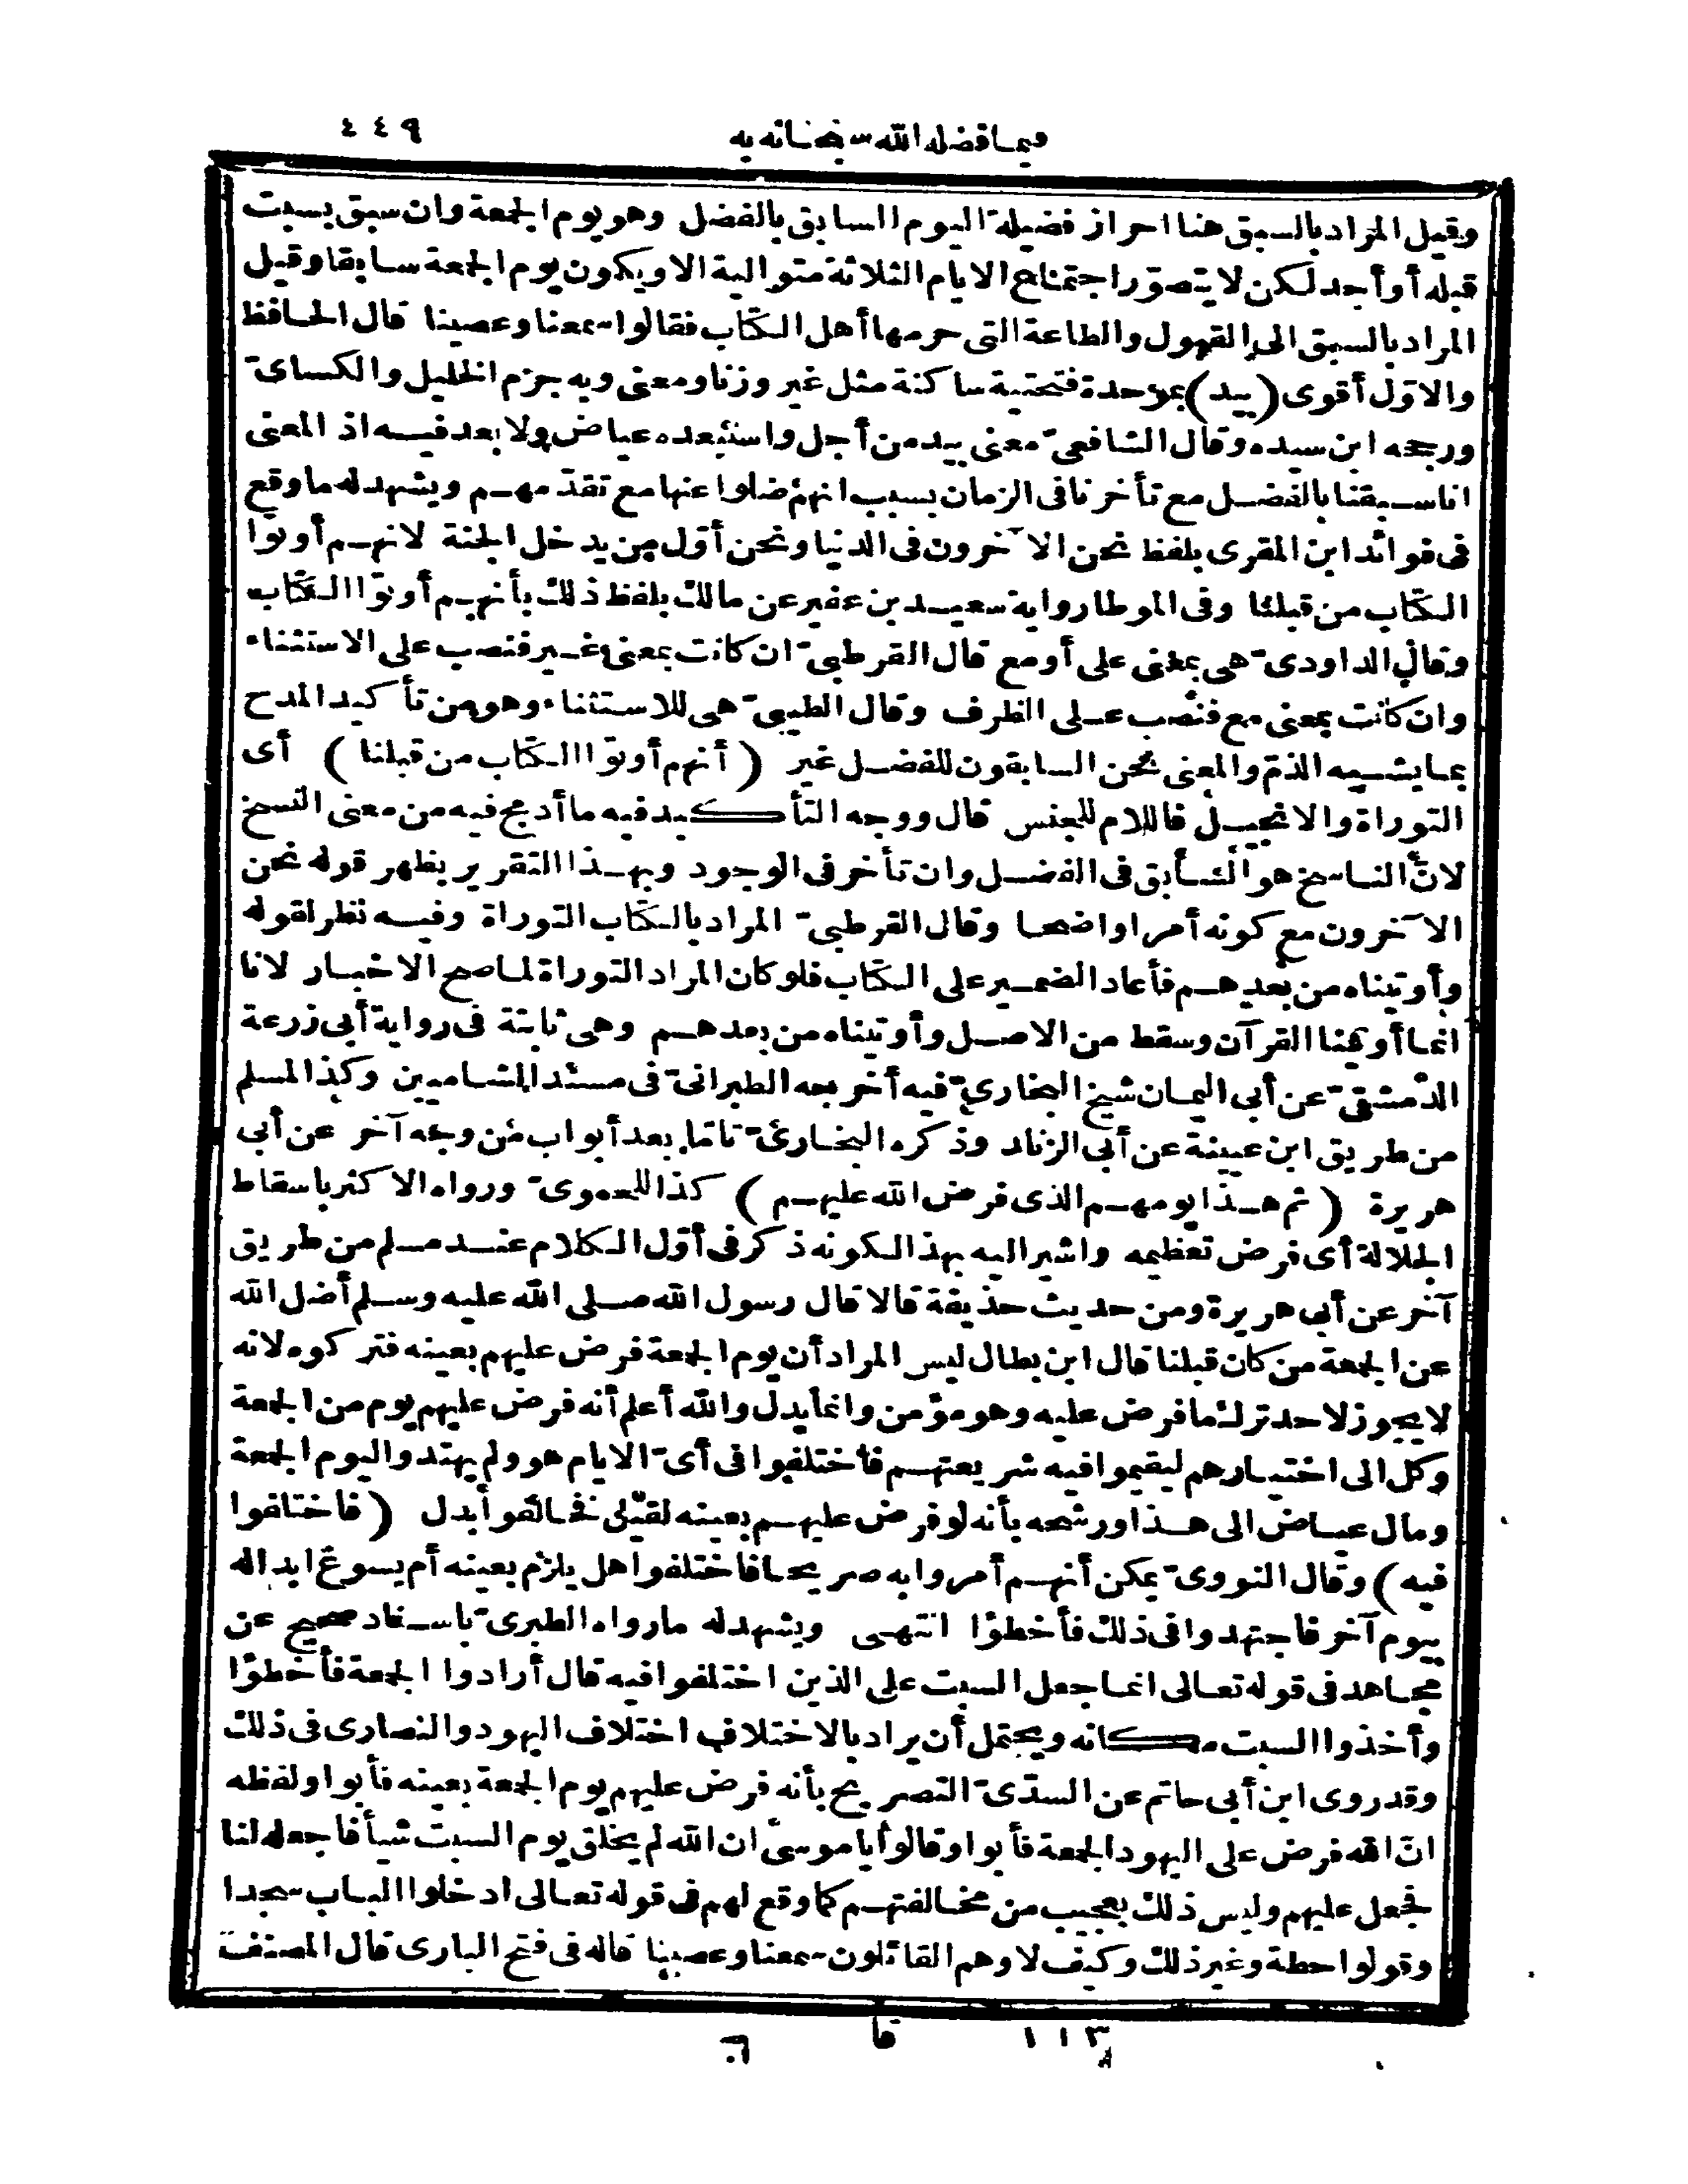 فيما فضله الله سبحانه به ٤٤٩
وقيل المراد بالسبق هنا احراز فضيلة اليوم السابق بالفضل وهو يوم الجمعة وان سبق بسبت
قبله أو أحد لكن لا يتصوّر اجتماع الايام الثلاثة متوالية الا ويكون يوم الجمعة سابقا وقيل
المراد بالسبق الى القبول والطاعة التى حرمها أهل الكتاب فقالوا سمعنا وعصينا قال الحافظ
والاوّل أقوى (بيد) بموحدة فتحتية ساكنة مثل غير وزنا ومعنى وبه جزم الخليل والكساىّ
ورجحه ابن سيده وقال الشافعىّ معنى بيد من أجل واستبعده عياض ولا بعد فيه اذ المعنى
اناسبقنا بالفضل مع تأخرنا فى الزمان بسبب انهم ضلوا عنها مع تقدّمهم ويشهد له ما وقع
فى فوائد ابن المقرى بلفظ نحن الآخرون فى الدنيا ونحن أوّل من يدخل الجنة لانهم أوتوا
الكتاب من قبلنا وفى الموطا رواية سعيد بن عفير عن مالك بلفظ ذلك بأنهم أوتوا الكتاب
وقال الداودىّ هى بمعنى على أو مع قال القرطبىّ ان كانت بمعنى غير فنصب على الاستثناء
وان كانت بمعنى مع فنصب على الظرف وقال الطيبىّ هى للاستثناء وهو من تأكيد المدح
بما يشبه الذمّ والمعنى نحن السابقون للفضل غير (أنهم أوتوا الكتاب من قبلنا) أى
التوراة والانجيل فاللام للجنس قال ووجه التأكيد فيه ما أدمج فيه من معنى النسخ
لانّ الناسخ هو السابق فى الفضل وان تأخر فى الوجود وبهذا التقرير يظهر قوله نحن
الآخرون مع كونه أمرا واضحا وقال القرطبىّ المراد بالكتاب التوراة وفيه نظر لقوله
وأوتيناه من بعدهم فأعاد الضمير على الكتاب فلو كان المراد التوراة لما صح الاخبار لانا
انما أوتينا القرآن وسقط من الاصل وأوتيناه من بعدهم وهى ثابتة فى رواية أبى زرعة
الدمشقىّ عن أبى اليمان شيخ البخارىّ فيه أخرجه الطبرانىّ فى مسند الشاميين وكذا لمسلم
من طريق ابن عيينة عن أبى الزناد وذكره البخارىّ تامّا بعد أبواب من وجه آخر عن أبى
هريرة (ثم هذا يومهم الذى فرض الله عليهم) كذا للحموىّ ورواه الاكثر باسقاط
الجلالة أى فرض تعظيمه واشير اليه بهذا لكونه ذكر فى أوّل الكلام عند مسلم من طريق
آخر عن أبى هريرة ومن حديث حذيفة قالا قال رسول الله صلى الله عليه وسلم أضل الله
عن الجمعة من كان قبلنا قال ابن بطال ليس المراد أن يوم الجمعة فرض عليهم بعينه فتركوه لانه
لا يجوز لاحد ترك ما فرض عليه وهو مؤمن وانما يدل والله أعلم أنه فرض عليهم يوم من الجمعة
وكل الى اختيارهم ليقيموا فيه شريعتهم فاختلفوا فى أىّ الايام هو ولم يهتدوا ليوم الجمعة
ومال عياض الى هذا ورشحه بأنه لو فرض عليهم بعينه لقيل فخالفوا بدل (فاختلفوا
فيه) وقال النووىّ يمكن أنهم أمروا به صريحا فاختلفوا هل يلزم بعينه أم يسوغ ابداله
بيوم آخر فاجتهدوا فى ذلك فأخطؤا انتهى ويشهد له ما رواه الطبرىّ باسناد صحيح عن
مجاهد فى قوله تعالى انما جعل السبت على الذين اختلفوا فيه قال أرادوا الجمعة فأخطؤا
وأخذوا السبت مكانه ويحتمل أن يراد بالاختلاف اختلاف اليهود والنصارى فى ذلك
وقد روى ابن أبى حاتم عن السدّىّ التصريح بأنه فرض عليهم يوم الجمعة بعينه فأبوا ولفظه
انّ الله فرض على اليهود الجمعة فأبوا وقالوا يا موسى ان الله لم يخلق يوم السبت شيأ فاجعله لنا
فجعل عليهم وليس ذلك بعجيب من مخالفتهم كما وقع لهم فى قوله تعالى ادخلوا الباب سجدا
وقولوا حطة وغير ذلك وكيف لا وهم القائلون سمعنا وعصينا قاله فى فتح البارى قال المصنف
١١٣ قا